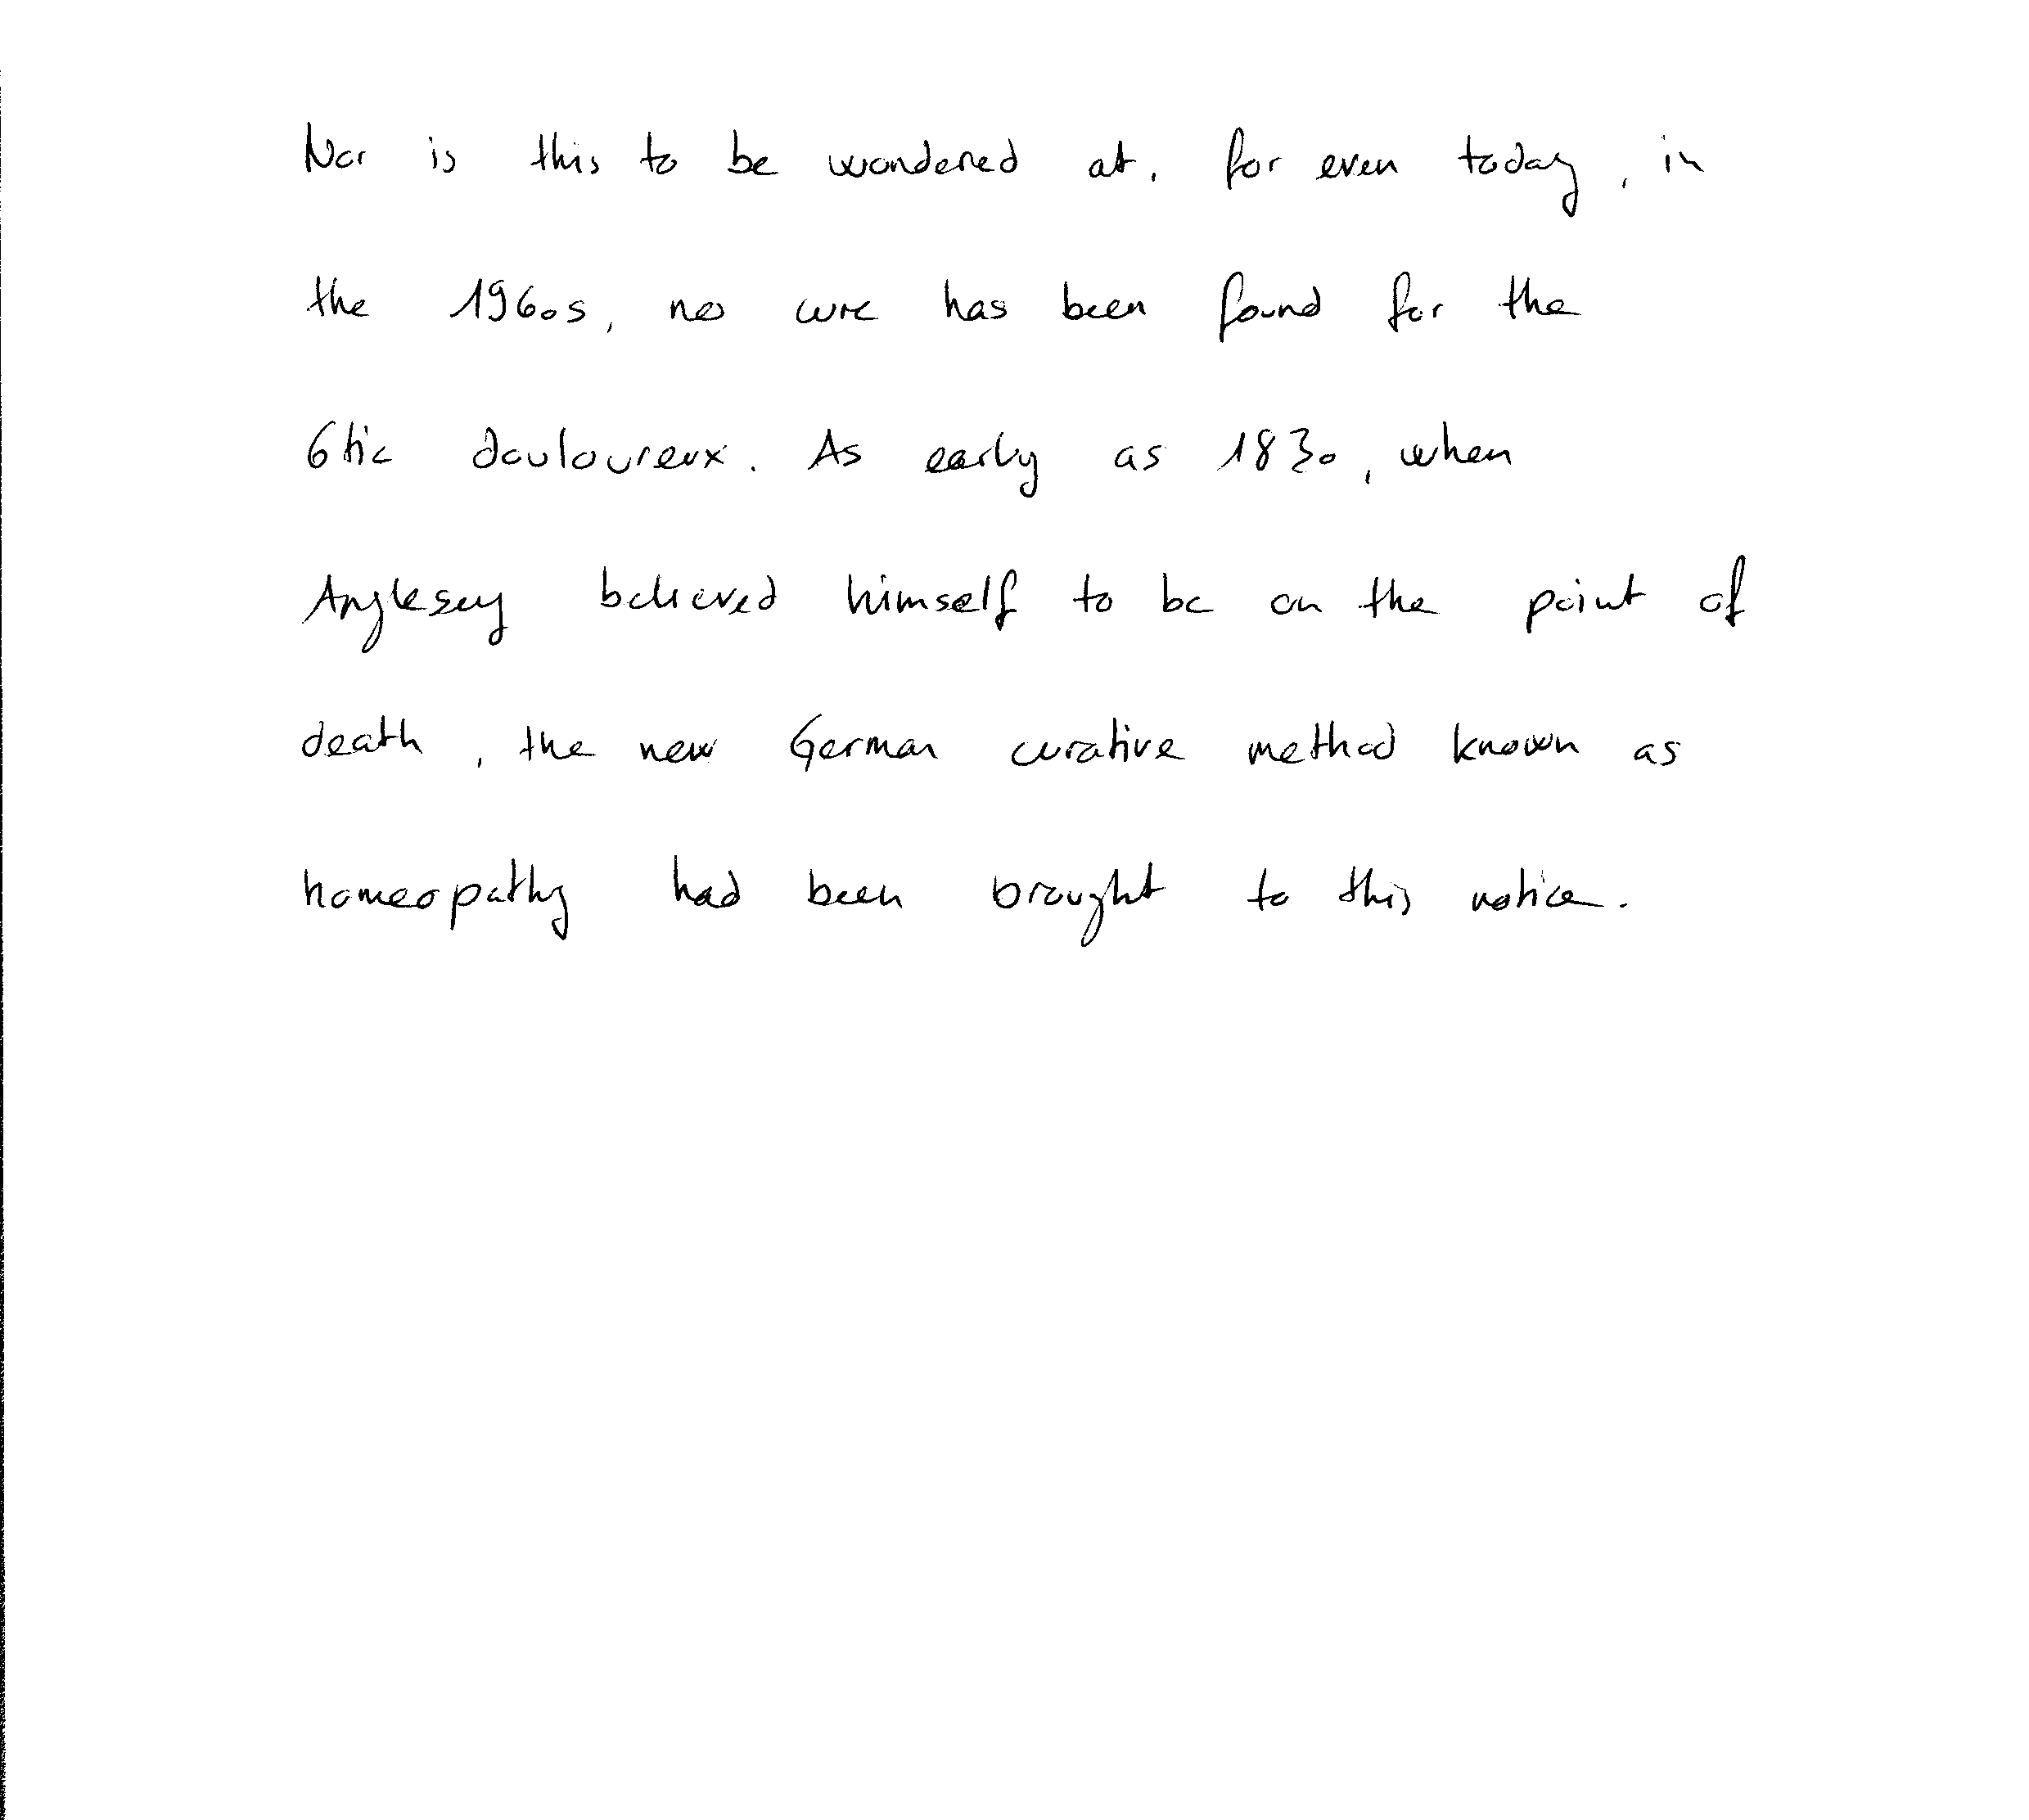 Nor is this to be wondered at, for even today, in
the 1960s, no cure has been found for the
6tic douloureux. As early as 1830, when
Anglesey believed himself to be on the point of
death, the new German curative method known as
homeopathy had been brought to this notice.